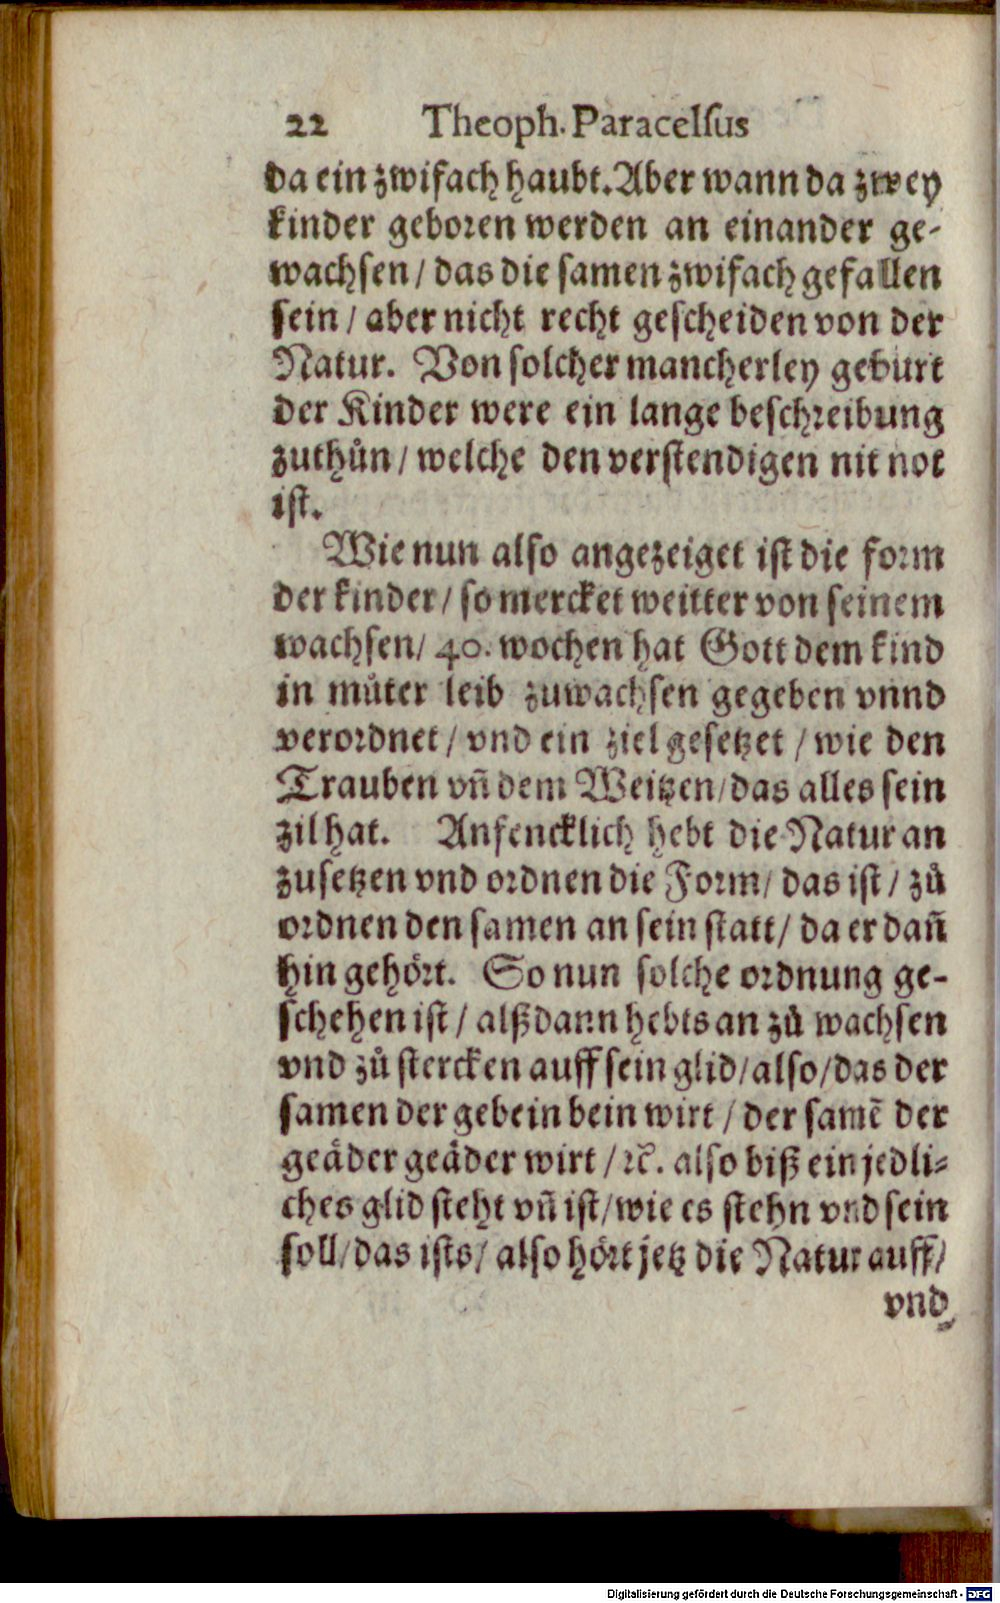 22 Theoph. Paracelſus
da ein zwifach haubt. Aber wann da zwey
kinder geboren werden an einander ge-
wachsen / das die samen zwifach gefallen
sein / aber nicht recht gescheiden von der
Natur. Von solcher mancherley geburt
der Kinder were ein lange beschreibung
zuthůn / welche den verstendigen nit not
ist.
Wie nun also angezeiget ist die form
der kinder / so mercket weitter von seinem
wachsen / 40. wochen hat Gott dem kind
in můter leib zuwachsen gegeben vnnd
verordnet / vnd ein ziel gesetzet / wie den
Trauben vñ dem Weitzen / das alles sein
zil hat. Anfencklich hebt die Natur an
zusetzen vnd ordnen die Form / das ist / zů
ordnen den samen an sein statt / da er dañ
hin gehört. So nun solche ordnung ge-
schehen ist / alßdann hebts an zů wachsen
vnd zů stercken auff sein glid / also / das der
samen der gebein bein wirt / der samē der
geäder geäder wirt / ꝛc. also biß ein jedli-
ches glid steht vñ ist / wie es stehn vnd sein
soll / das ists / also hört jetz die Natur auff /
vnd
Digitalisierung gefördert durch die Deutsche Forschungsgemeinschaft - DFG